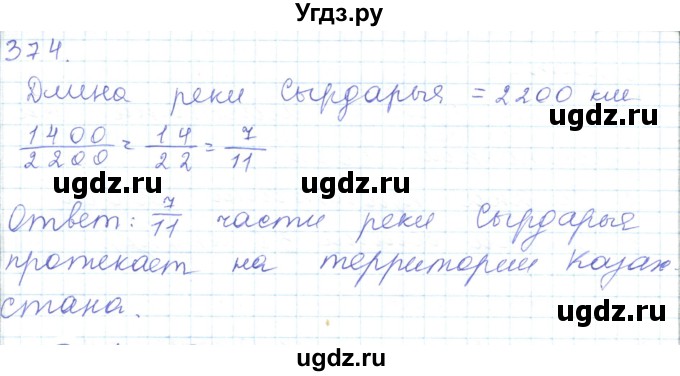 Угдз.ру
374.
ugdz.ru ugdz.ru
Длина реки Сырдарыя = 2200 км
1400/2200 = 14/22 = 7/11
ugdz.ru ugdz.ru
Ответ: 7/11 части реки Сырдарыя
протекает на территории Казах
стана.
ugdz.ru ugdz.ru
ugdz.ru